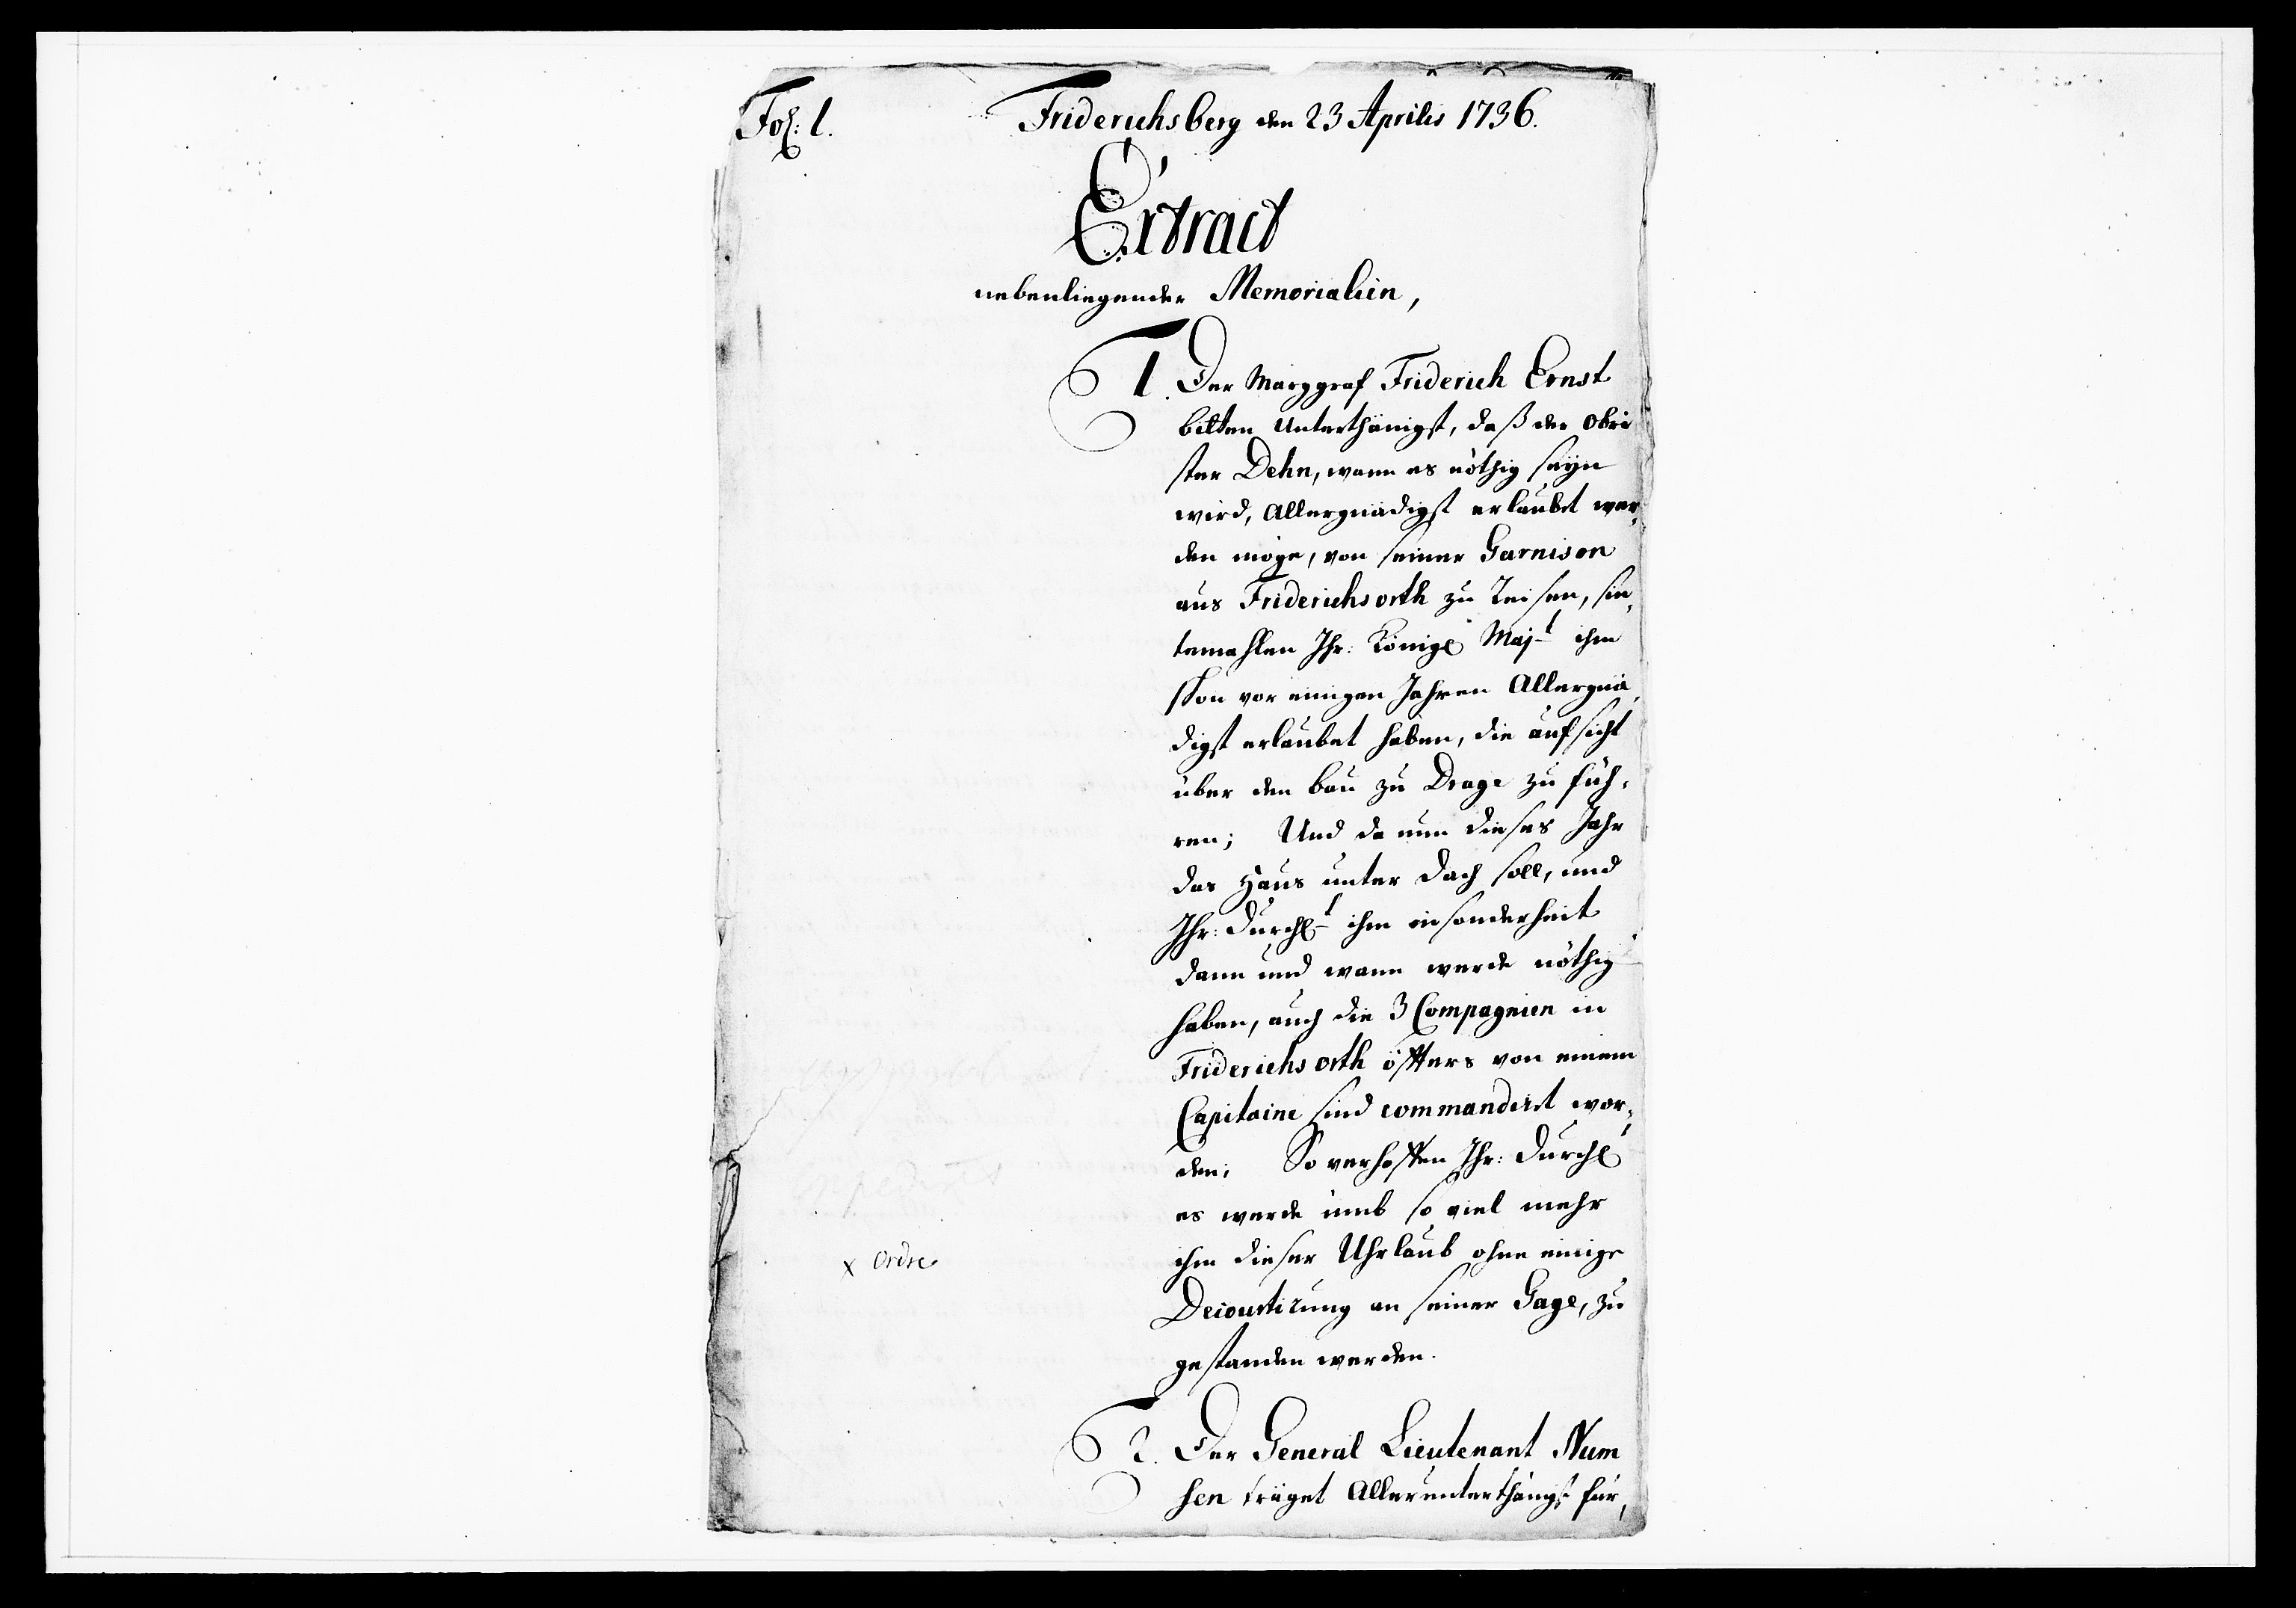 Fol: 1.
Friderichsberg den 23 Aprilis 1736.
Extract
nebenliegender Memorialien,
1. Der Marggraf Friderich Ernst
bitten Unterthänigst, daß der Obri
ster Dehn, wann es nöthig seyn
wird, Allergnädigst erlaubet wer,
den möge, von seiner Garnison
aus Friderichsorth zu Reisen, sin,
temahlen Ihr: Königl Maj-t ihm
schon vor einigen Jahren Allergnä,
digst erlaubet haben, die aufsicht
über den bau zu Drage zu füh,
ren; Und da nun dieses Jahr
das Haus unter dach soll, und
Ihr: Durchl-t ihm insonderheit
dann und wann werde nöthig
haben, auch die 3 Compagnien in
Friderichsorth öffters von einem
Capitaine sind commandiret wor,
den; So verhoffen Ihr: Durchl
es werde umb so viel mehr
ihm dieser Uhrlaub ohne einige
Decourtirung an seiner Gage, zu
gestanden werden.
x Ordre
2. Der General Lieutenant Num
sen träget Allerunterthängst für,